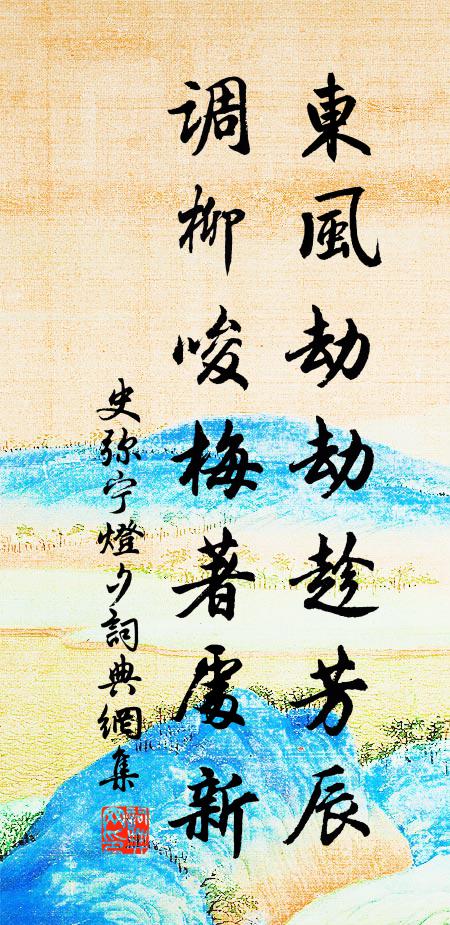 東風劫劫趁芳辰
调柳唆梅著處新
史弥宁燈夕詞典網集